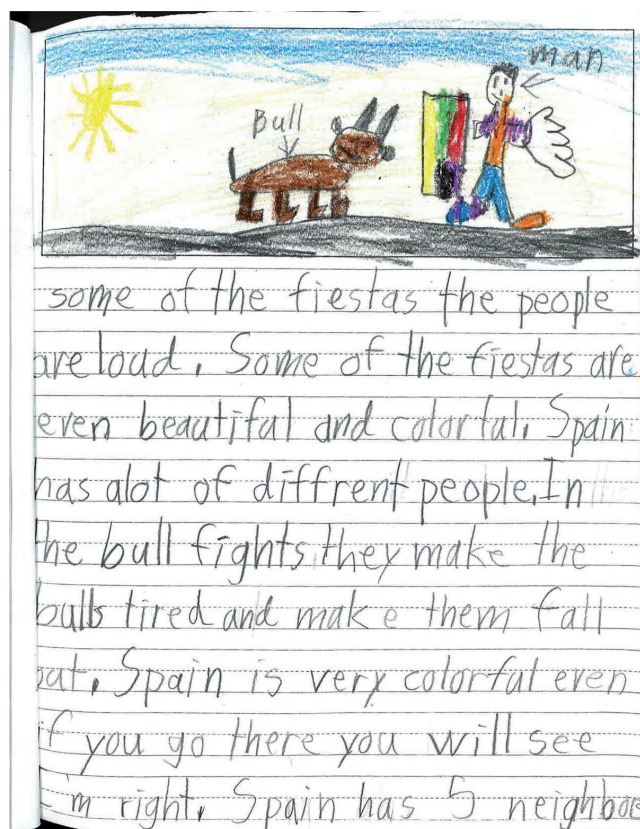 man
Bull
some of the fiestas the people
are loud. Some of the fiestas are
even beautiful and colorful. Spain
has alot of diffrent people. In
the bull fights they make the
bulls tired and make them fall
out. Spain is very colorful even
if you go there you will see
I'm right. Spain has 5 neighbor